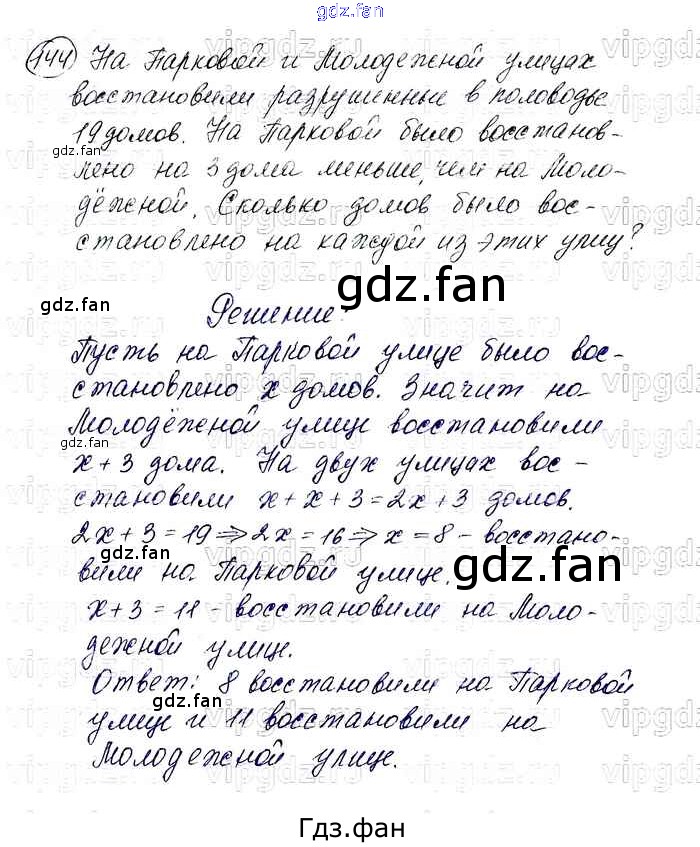 gdz.fan
144 На Парковой и Молодежной улицах
восстановили разрушенные в половодье
19 домов. На Парковой было восстанов-
gdz.fan
лено на 3 дома меньше, чем на Моло-
дёжной. Сколько домов было вос-
становлено на каждой из этих улиц?
gdz.fan
gdz.fan
Решение:
Пусть на Парковой улице было вос-
становлено x домов. Значит на
Молодёжной улице восстановили
gdz.fan
x + 3 дома. На двух улицах вос-
становили x + x + 3 = 2x + 3 домов.
2x + 3 = 19 ⇒ 2x = 16 ⇒ x = 8 - восстано-
gdz.fan
вили на Парковой улице.
gdz.fan
x + 3 = 11 - восстановили на Моло-
дежной улице.
Ответ: 8 восстановили на Парковой
gdz.fan
улице и 11 восстановили на
Молодежной улице.
Гдз.фан